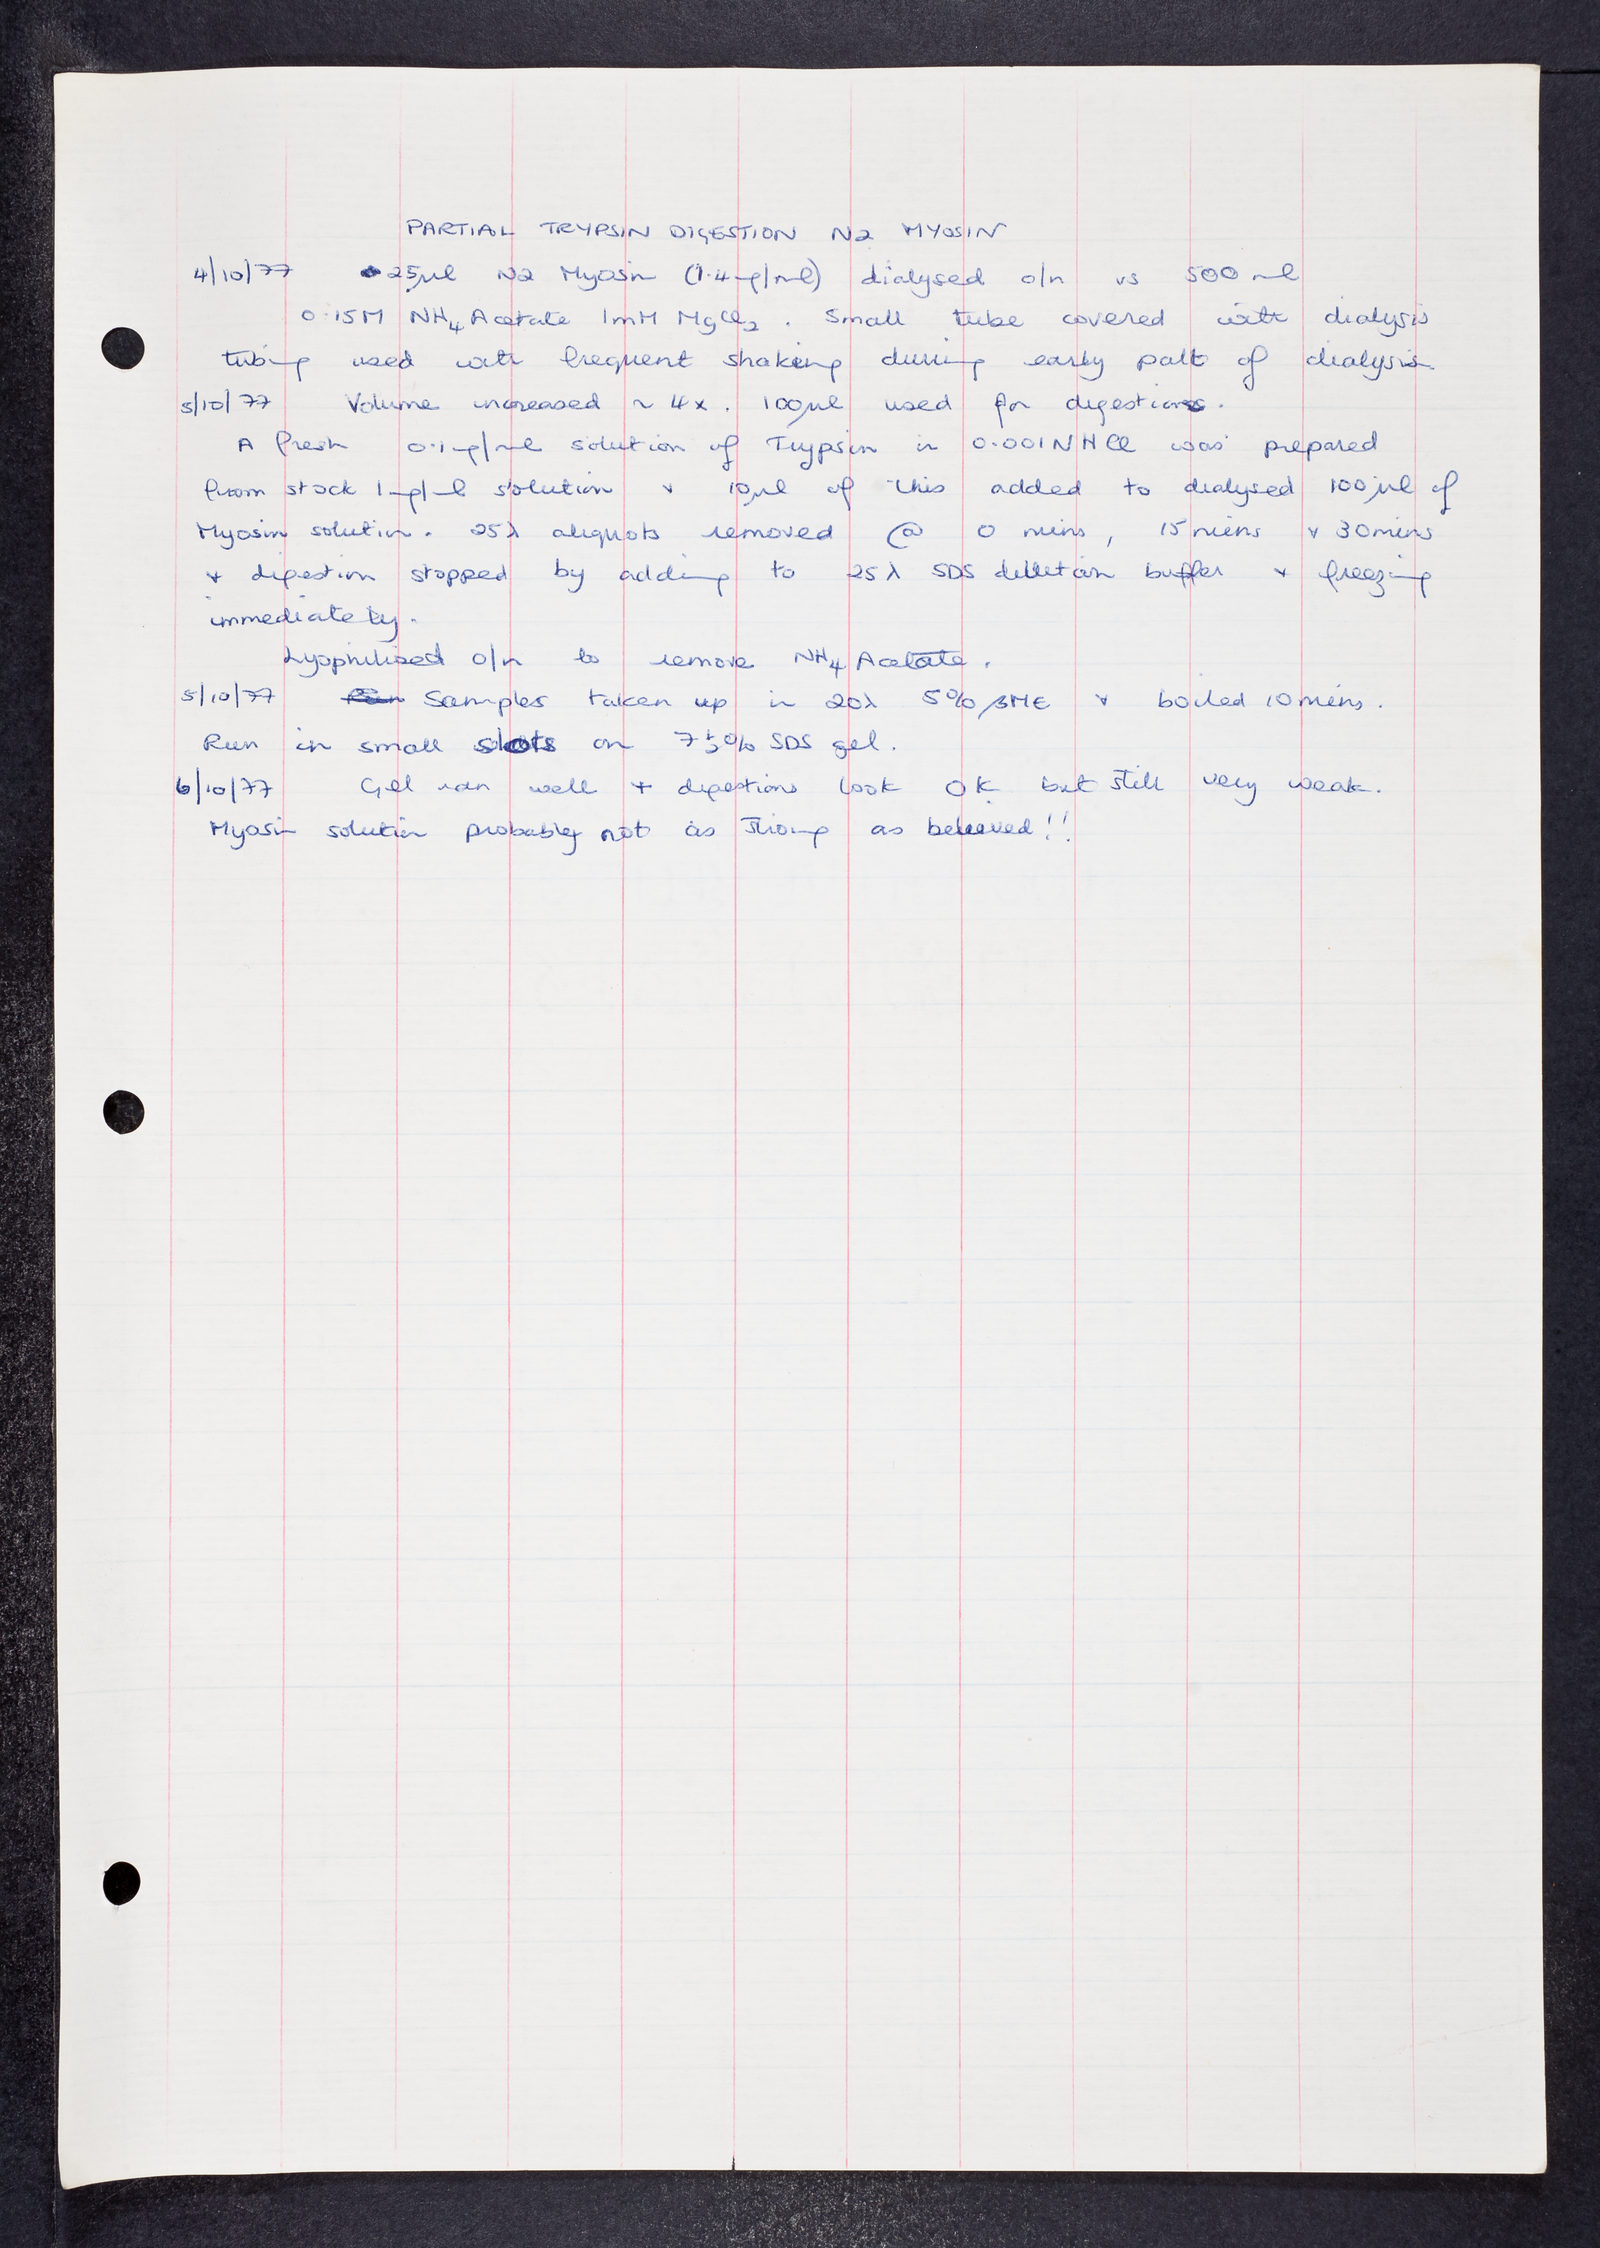 PARTIAL TRYPSIN DIGESTION N2 MYOSIN
4/10/77 25µl N2 Myosin (1.4mg/ml) dialysed o/n vs 500 ml
0.15M NH4 Acetate 1mM MgCl2. Small tube covered with dialysis
tubing used with frequent shaking during early part of dialysis
5/10/77 Volume increased ~ 4x. 100µl used for digestions.
A fresh 0.1mg/ml solution of Trypsin in 0.001N HCl was prepared
from stock 1mg/ml solution + 10µl of this added to dialysed 100µl of
Myosin solution. 25λ aliquots removed @ 0 mins, 15 mins + 30 mins
+ digestion stopped by adding to 25λ SDS dilution buffer + freezing
immediately.
Lyophilised o/n to remove NH4 Acetate.
5/10/77 Samples taken up in 20λ 5% βME + boiled 10 mins.
Run in small slots on 7½% SDS gel.
6/10/77 Gel ran well + digestions look OK but still very weak.
Myosin solution probably not as strong as believed!!